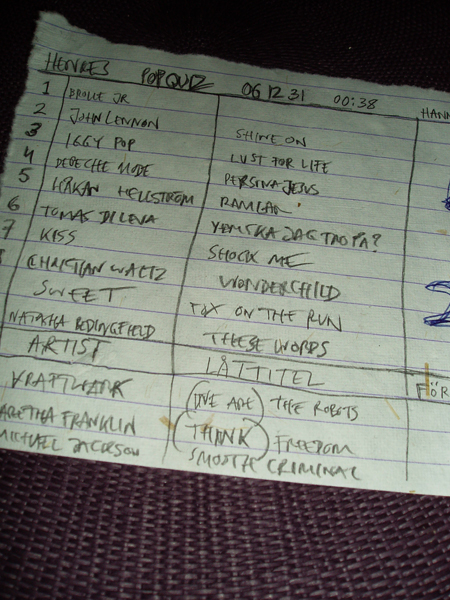 HENRES POPQUIZ 06 12 31 00:38 HANN
1 BROLLE JR
2 JOHN LENNON SHINE ON
3 IGGY POP LUST FOR LIFE
4 DEPECHE MODE PERSONA JESUS
5 HÅKAN HELLSTRÖM RAMLAR
6 TOMAS DI LEVA VEM SKA JAG TRO PÅ?
7 KISS SHOCK ME
CHRISTIAN WALTZ WONDERCHILD
SWEET FOX ON THE RUN
NATASHA BEDINGFIELD THESE WORDS
ARTIST LÅTTITEL FÖR
KRAFTWERK (WE ARE) THE ROBOTS
ARETHA FRANKLIN (THINK) FREEDOM
MICHAEL JACKSON SMOOTH CRIMINAL